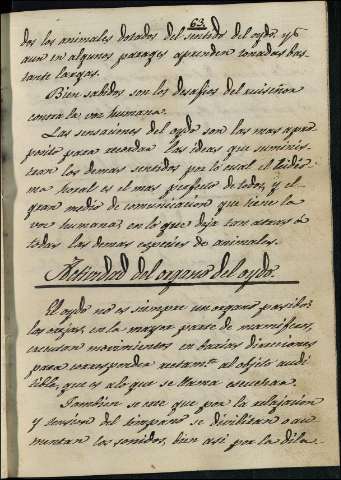 63
dos los animales dotados del sentido del oydo, y
aun en algunos parages aprenden tonadas bas-
tante largas.
Bien sabidos son los desafios del ruiseñor
contra la voz humana.
Las sensaciones del oydo son las mas apro
posito para recordar las ideas que suminis-
tran los demas sentidos por lo cual el Ydio-
ma boral es el mas perfecto de todos, y el
gran medio de comunicacion que tiene la
voz humana; en lo que deja tan atras á
todas las demas especies de animales.
Actividad del organo del oydo.
El oydo no es siempre un organo pasibo;
las orejas, en la mayor parte de mamiferos,
ejecutan movimientos en barias direcciones
para corresponder rectam.te al objeto audi
tible, que es a lo que se llama escuchar.
Tambien se cree que por la relajacion
y tension del timpano se devilitan o au
mentan los sonidos, bien asi por la dila-